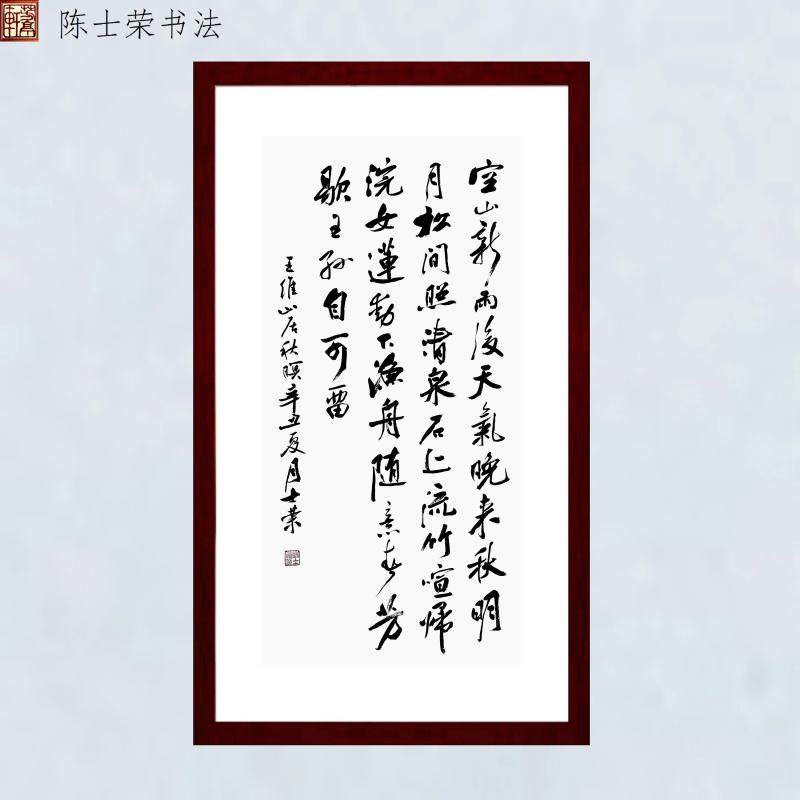 陈士荣书法
空山新雨後天氣晚来秋明
月松间照清泉石上流竹喧帰
浣女蓮動下漁舟随意春芳
歇王孙自可畱
王维山居秋暝辛丑夏月士荣